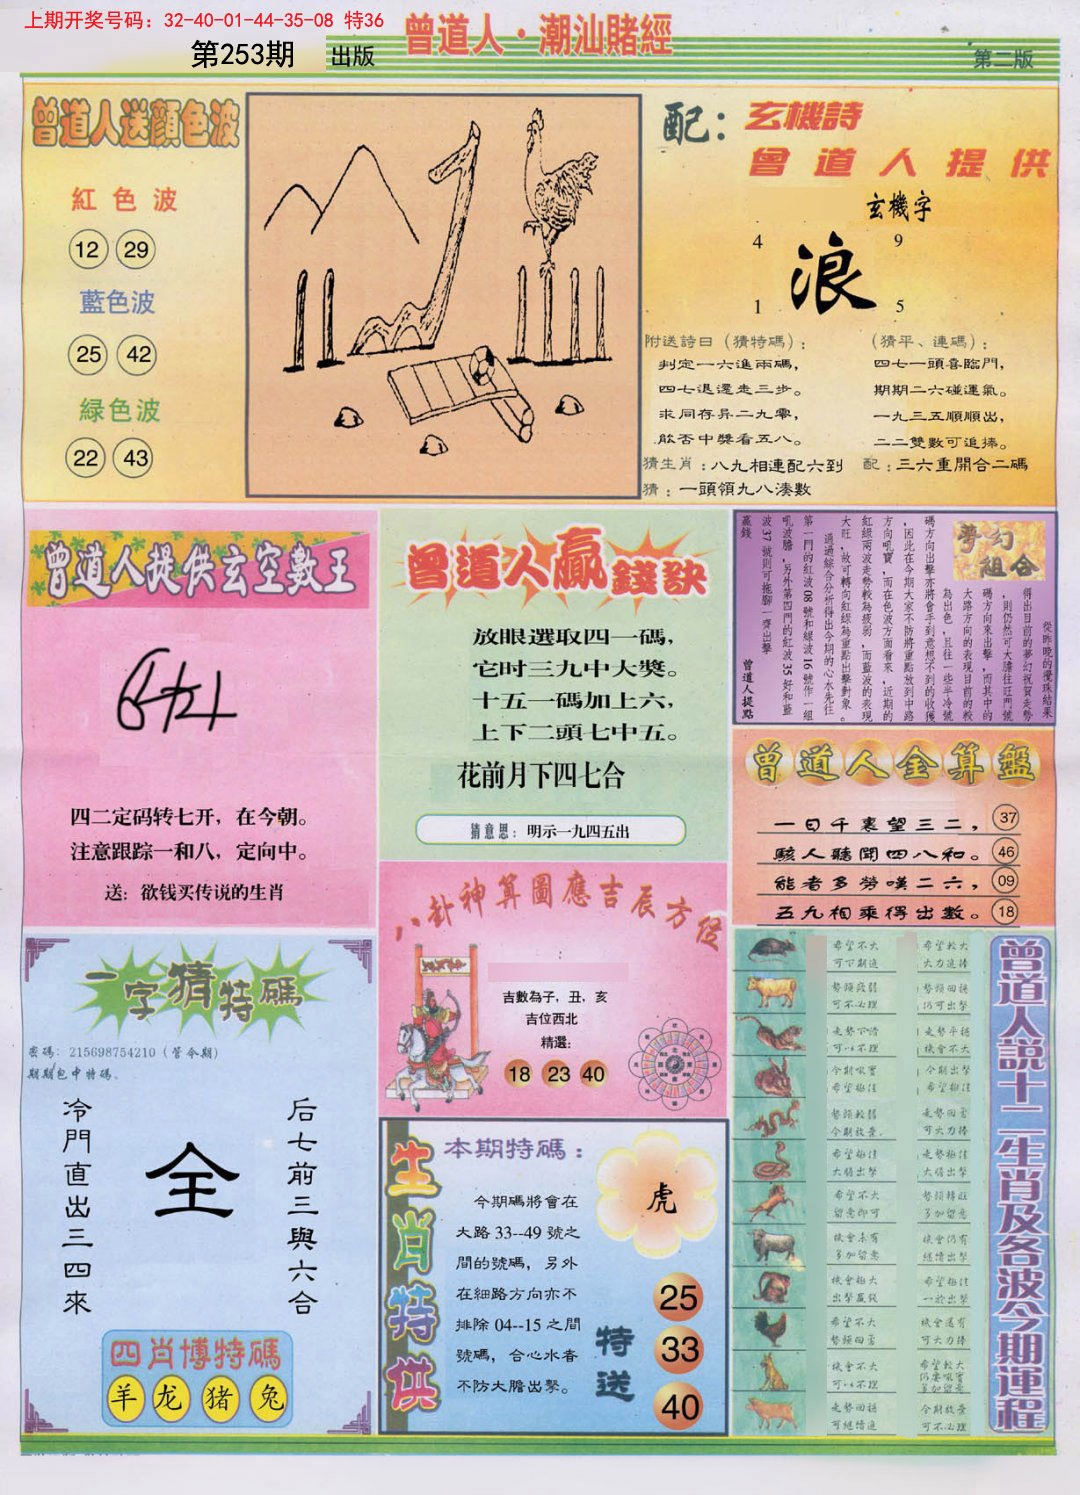 上期开奖号码：32-40-01-44-35-08 特36
第253期 出版
曾道人·潮汕賭經
第二版
曾道人送顏色波
紅色波
12 29
藍色波
25 42
緑色波
22 43
配：玄機詩
曾道人提供
玄機字
4 9
浪
1 5
附送詩曰（猜特碼）：
判定一六進兩碼，
四七退還走三步。
求同存异二九零，
能否中獎看五八。
（猜平、連碼）：
四七一頭喜臨門，
期期二六碰運氣。
一九三五順順出，
二二雙數可追捧。
猜生肖：八九相連配六到 配：三六重開合二碼
猜：一頭領九八湊數
曾道人提供玄空數王
四二定码转七开，在今朝。
注意跟踪一和八，定向中。
送：欲钱买传说的生肖
曾道人贏錢訣
放眼選取四一碼，
它时三九中大獎。
十五一碼加上六，
上下二頭七中五。
花前月下四七合
猜意思：明示一九四五出
夢幻組合
從昨晚的攪珠結果
得出目前的夢幻祝賀走勢
，則仍然可大膽往旺門號
碼方向來出擊，而其中的
大路方向的表現目前的較
為出色，且往一些半冷號
碼方向出擊亦將會手到意想不到的收獲
，因此在今期大家不防將重點放到中路
方向吼寶，而在色波方面看來，近期的
紅綠兩波走勢較為疲弱，而藍波的表現
大旺，故可轉向紅綠為重點出擊對象。
通過綜合分析得出今期的心水先往
第一門的紅波08號和綠波16號作一組
吼波膽，另外第四門的紅波35好和藍
波37號則可拖腳一齊出擊
贏錢
曾道人提點
曾道人全算盤
一日千裏望三二， 37
駭人聽聞四八和。 46
能者多勞嘆二六， 09
五九相乘得出數。 18
八卦神算圖應吉辰方位
吉數為子，丑，亥
吉位西北
精選：
18 23 40
一字猜特碼
密碼：215698754210（管令期）
期期包中特碼。
冷門直出三四來
全
后七前三與六合
四肖博特碼
羊 龙 猪 兔
生肖特供
本期特碼：
今期碼將會在
大路33--49號之
間的號碼，另外
在細路方向亦不
排除04--15之間
號碼，合心水春
不防大膽出擊。
虎
特送
25
33
40
曾道人說十二生肖及各波今期運程
希望不大 希望較大
可下期追 大力追捧
勢頭疲弱 勢頭回揚
可不必理 仍可出擊
走勢下滑 走勢平穩
可以不理 機會不大
今期吼實 今期出擊
希望極佳 希望極佳
勢頭較弱 走勢回勇
今期放棄 可大力捧
走勢極佳 走勢極佳
大膽出擊 大膽出擊
希望不大 勢頭轉旺
留意即可 多加留意
機會未有 機會仍有
多加留意 繼續出擊
機會極大 希望極佳
出擊贏錢 一於出擊
希望不大 機會還有
勢頭回勇 可大力捧
機會不大 希望較大
可以不理 仍要吼實
多加留意
走勢回揚 今期放棄
可繼續追 可不必理